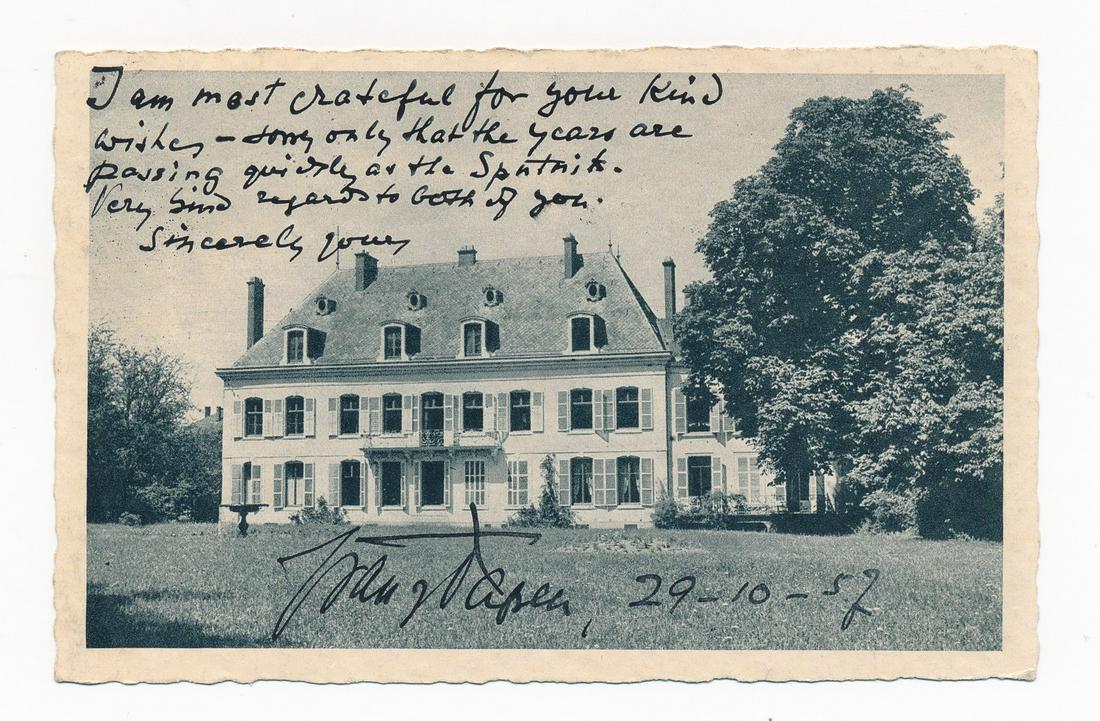 I am most grateful for your kind
wishes – sorry only that the years are
passing quickly as the Sputnik.
Very kind regards to both of you.
Sincerely yours
Franz v Papen, 29-10-57